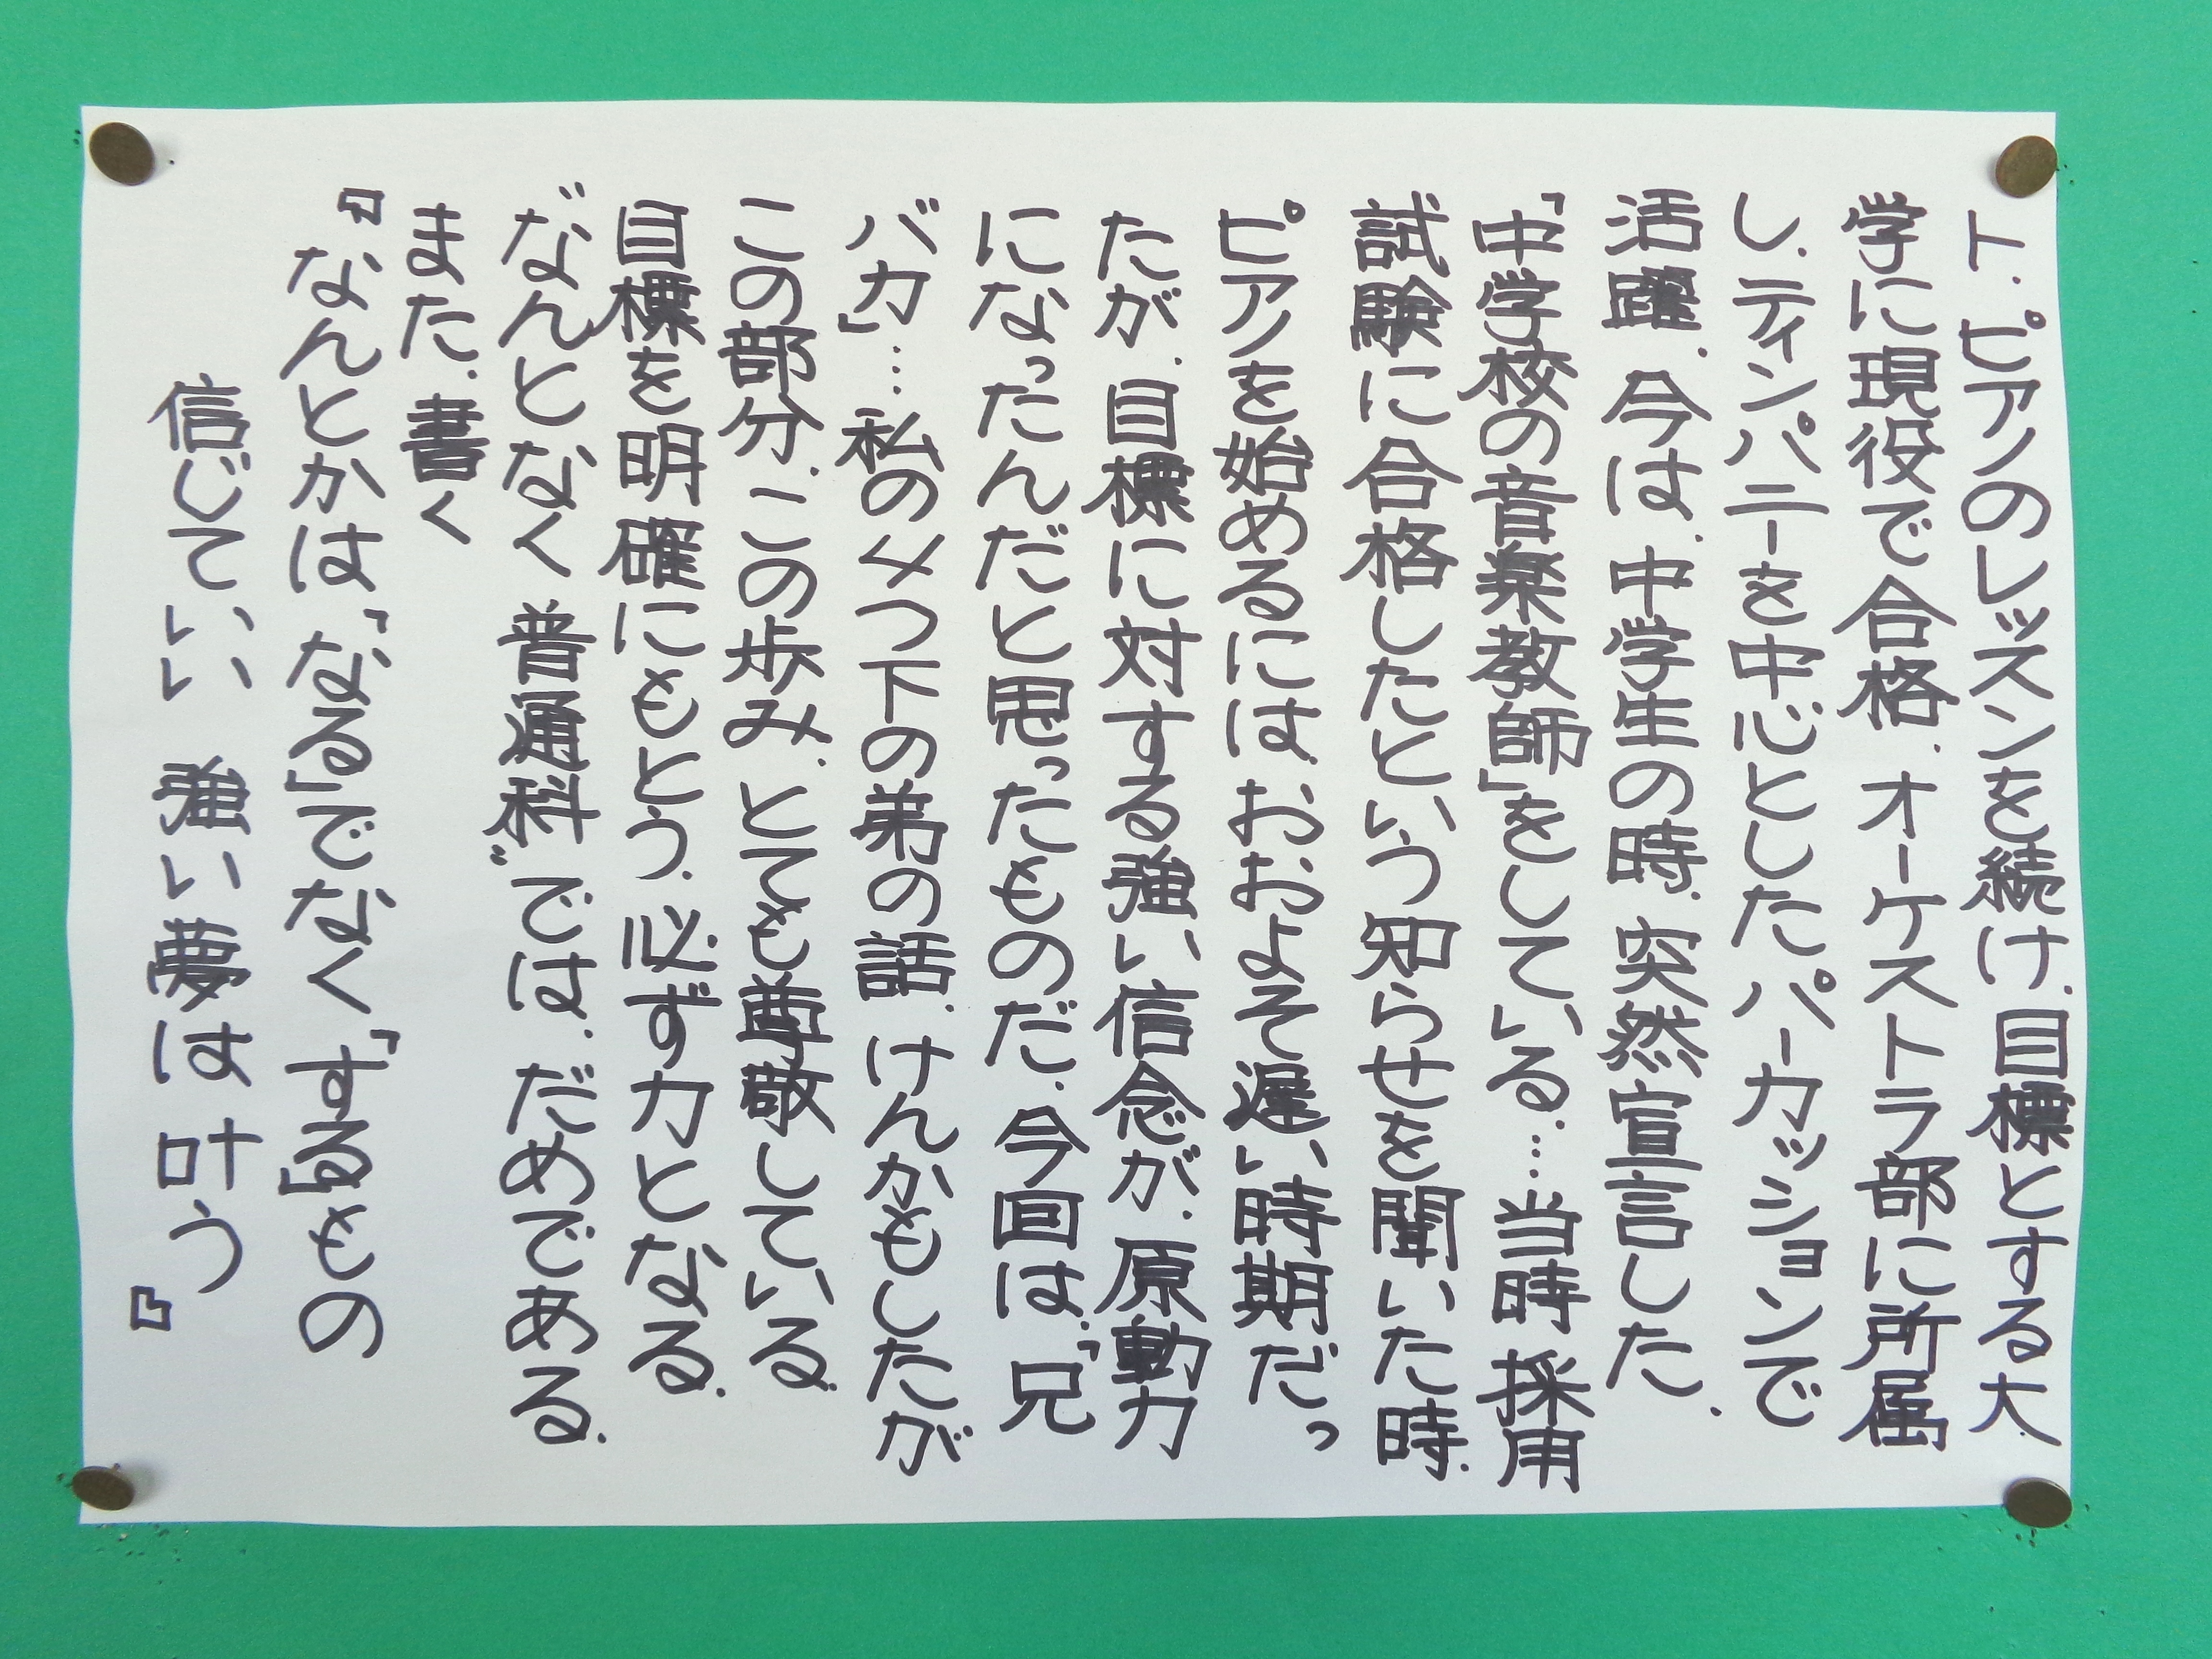 ト.ピアノのレッスンを続け.目標とする大
学に現役で合格.オーケストラ部に所属
し.ティンパニーを中心としたパーカッションで
活躍.今は.中学生の時.突然宣言した.
「中学校の音楽教師」をしている…当時採用
試験に合格したという知らせを聞いた時.
ピアノを始めるには.おおよそ遅い時期だっ
たが.目標に対する強い信念が.原動力
になったんだと思ったものだ.今回は.「兄
バカ」…私の4つ下の弟の話.けんかもしたが
この部分.この歩み.とても尊敬している.
目標を明確にもとう.必ず力となる.
〝なんとなく普通科〟では.だめである.
また.書く
『なんとかは「なる」でなく「する」もの
信じていい 強い夢は叶う』